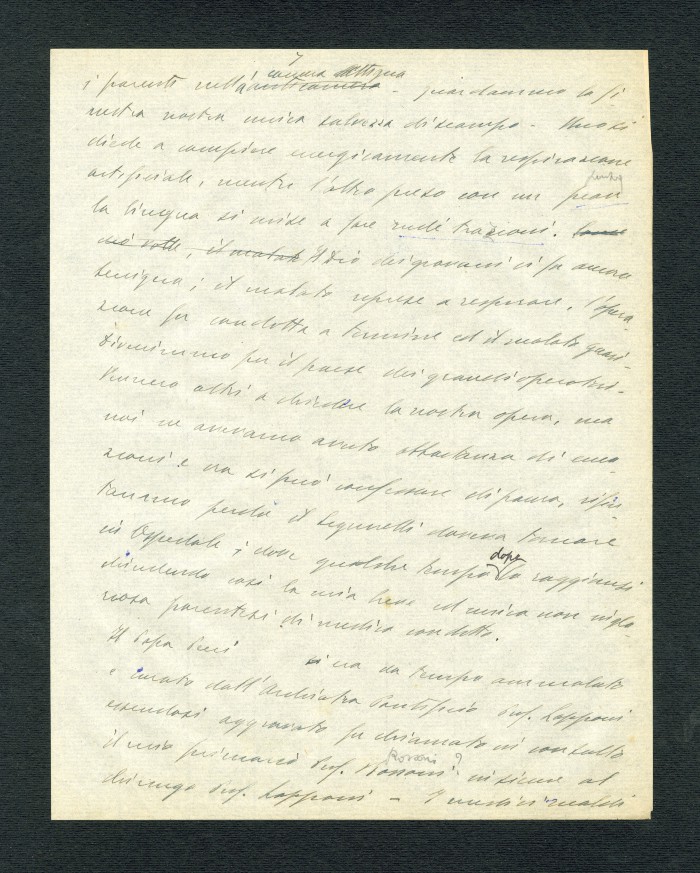 camera attigua
i parenti nell'anticamera - guardammo la fi
nestra nostra unica salvezza di scampo - Uno si
diede a compiere energicamente la respirazione
artificiale, mentre l'altro preso con un
la lingua si mise a fare rudi trazioni.
il malato Il Dio dei giovani ci fu ancora
benigno; il malato riprese a respirare, l'opera
zione fu condotta a termine ed il malato guarì.
Divenimmo per il paese dei grandi operatori.
Vennero altri a chiedere la nostra opera, ma
noi ne avevamo avuto abbastanza di emo
zioni e ora si può confessare di paura,
perché il doveva tornare
dopo
in Ospedale; dove qualche tempo lo raggiunsi
chiudendo così la mia breve ed unica non inglo
riosa parentesi di medico condotto.
Il Papa era da tempo ammalato
e curato dall'Archiatra Pontificio Prof. Lapponi
essendosi aggravato fu chiamato in consulto
Rossoni ?
il mio primario Prof. Rossoni insieme al
chirurgo Prof. Lapponi - I medici